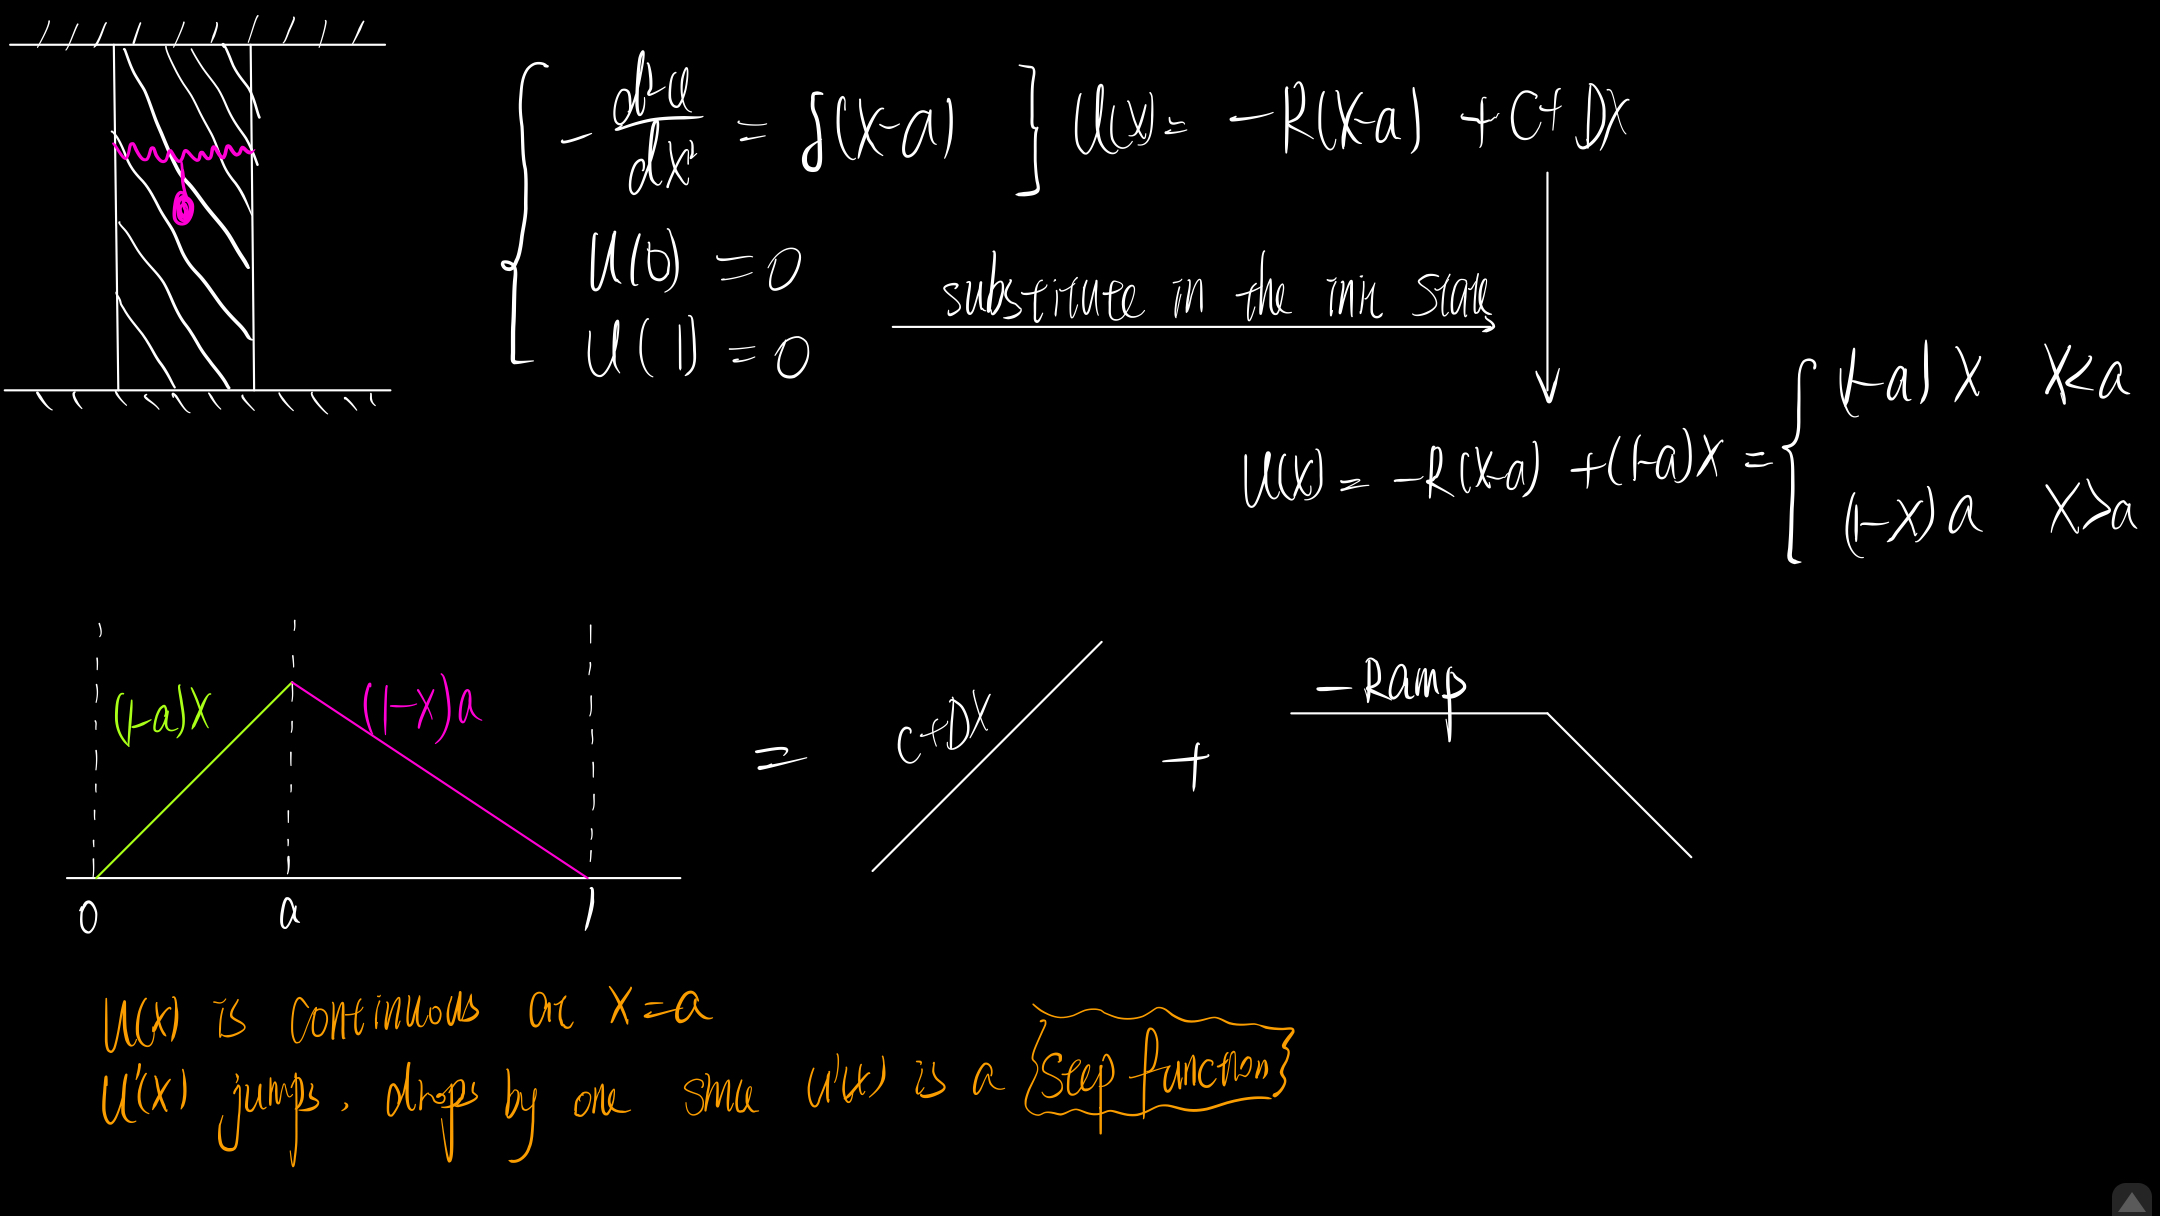 -d²u/dx² = δ(x-a) } U(x) = -R(x-a) + C + DX
U(0) = 0
U(1) = 0
substitute in the init state
U(x) = -R(x-a) + (1-a)X = { (1-a)X X<a
(1-X)a X>a
(1-a)X
(1-X)a
=
C+DX
+
-Ramp
0 a 1
U(x) is continuous at X=a
U'(x) jumps, drops by one since U'(x) is a {step function}